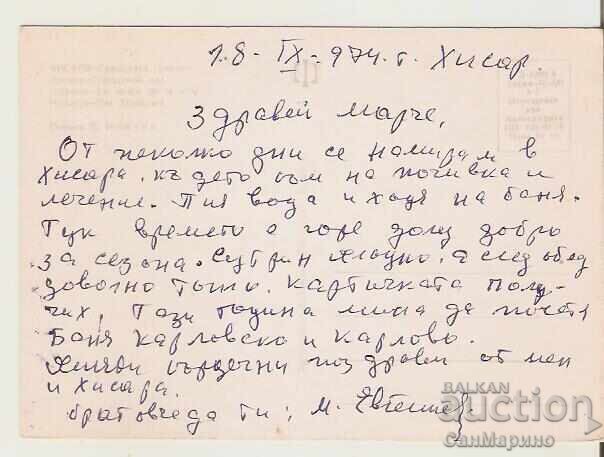 18 - IX - 974 г. Хисар
Здравей Марче,
От неколко дни се намирам в
Хисара. където съм на почивка и
лечение. Пия вода и ходя на баня.
Тук времето е горе долу добро
за сезона. Сутрин хладно, а след обед
доволно топло. Картичката полу-
чих, Тази година мина да посетя
Баня Карловско и Карлово.
Хиляди сърдечни поздрави от мен
и Хисара.
братовчеда ти: М. Евтимов
BALKAN
auction
СанМарино